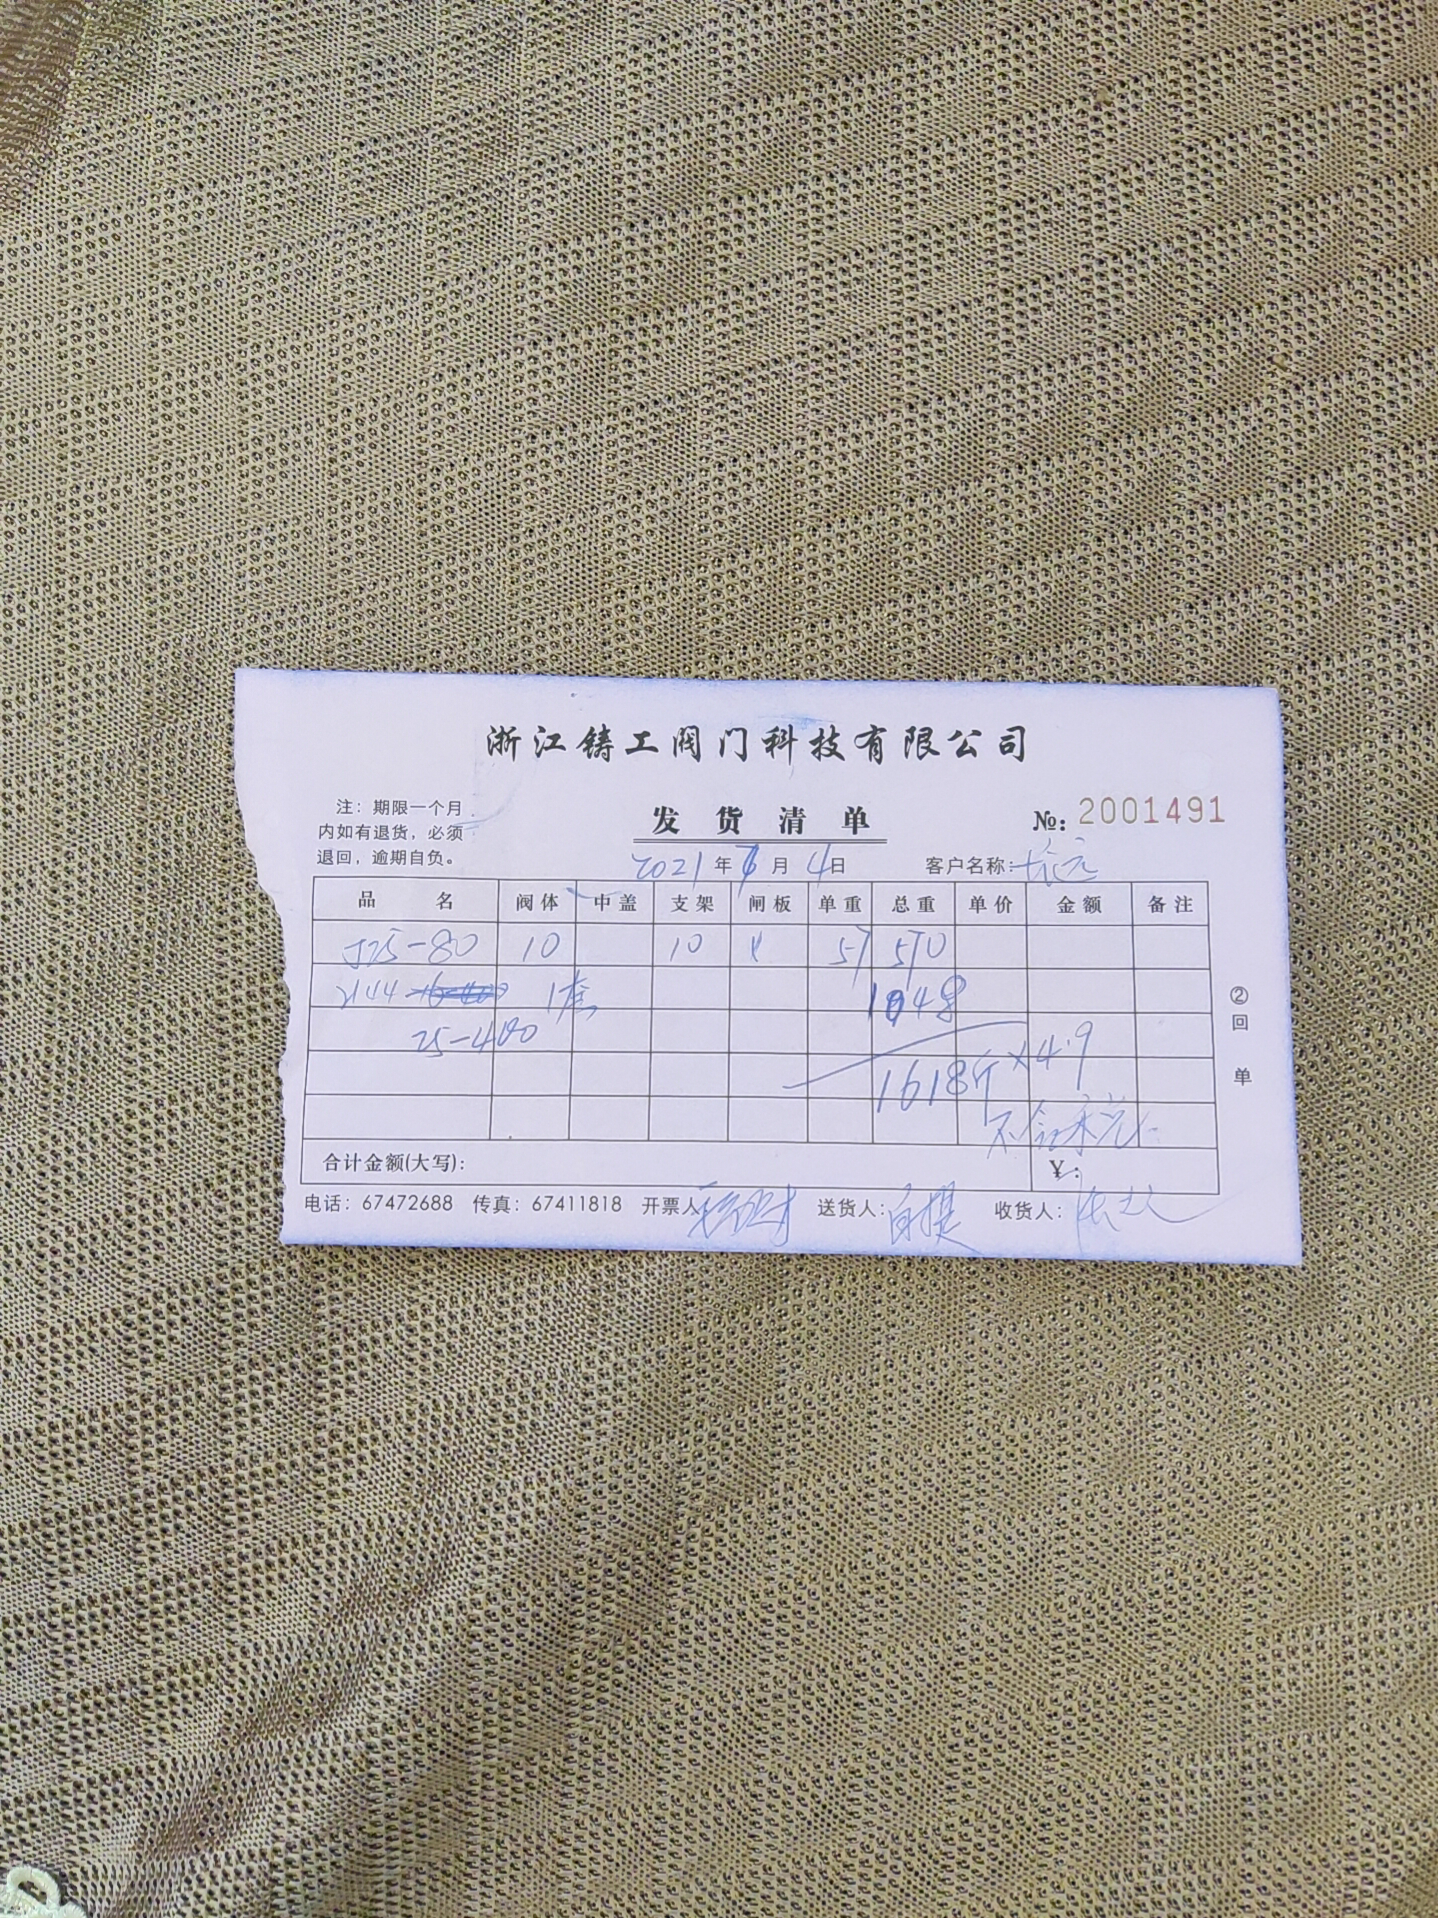 浙江铸工阀门科技有限公司
注：期限一个月
内如有退货，必须
退回，逾期自负。
发货清单
№: 2001491
2021年 月4日 客户名称：长元
品名 阀体 中盖 支架 闸板 单重 总重 单价 金额 备注
J25-80 10 10 57 570
2144 1套 1048
25-400
1618斤×4.9
不含税
合计金额(大写): ¥:
电话：67472688 传真：67411818 开票人 送货人：自提 收货人：
②回单